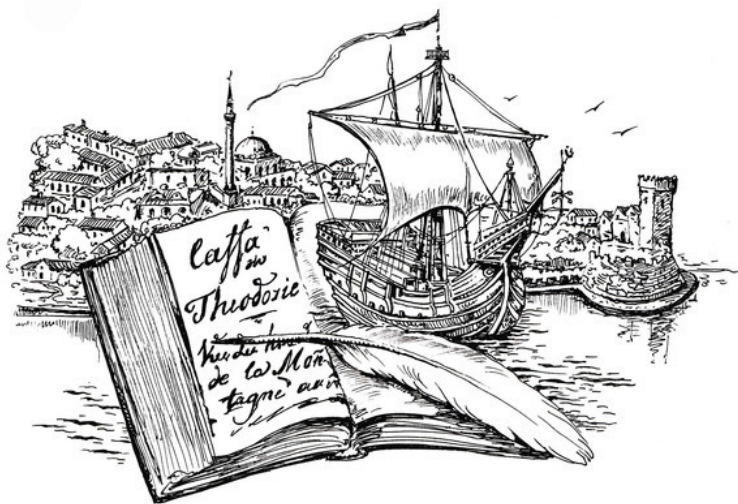 Caffa
ou
Théodosie
Vue du haut
de la Mon-
tagne au